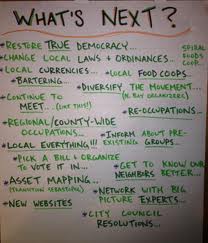 WHAT'S NEXT?
• RESTORE TRUE DEMOCRACY...
• CHANGE LOCAL LAWS + ORDINANCES...
SPIRAL FOODS COOP
• LOCAL CURRENCIES...
• LOCAL FOOD COOPS...
• BARTERING...
• DIVERSIFY THE MOVEMENT...
(N. BAY ORGANIZER)
• CONTINUE TO MEET... (LIKE THIS!)
• RE-OCCUPATIONS...
• REGIONAL/COUNTY-WIDE OCCUPATIONS...
• INFORM ABOUT PRE-EXISTING GROUPS...
• LOCAL EVERYTHING!!!
• PICK A BILL + ORGANIZE TO VOTE IT IN...
• GET TO KNOW OUR NEIGHBORS BETTER...
• ASSET MAPPING...
(TRANSITION SEBASTOPOL)
• NETWORK WITH BIG PICTURE EXPERTS...
• NEW WEBSITES
• CITY COUNCIL RESOLUTIONS...